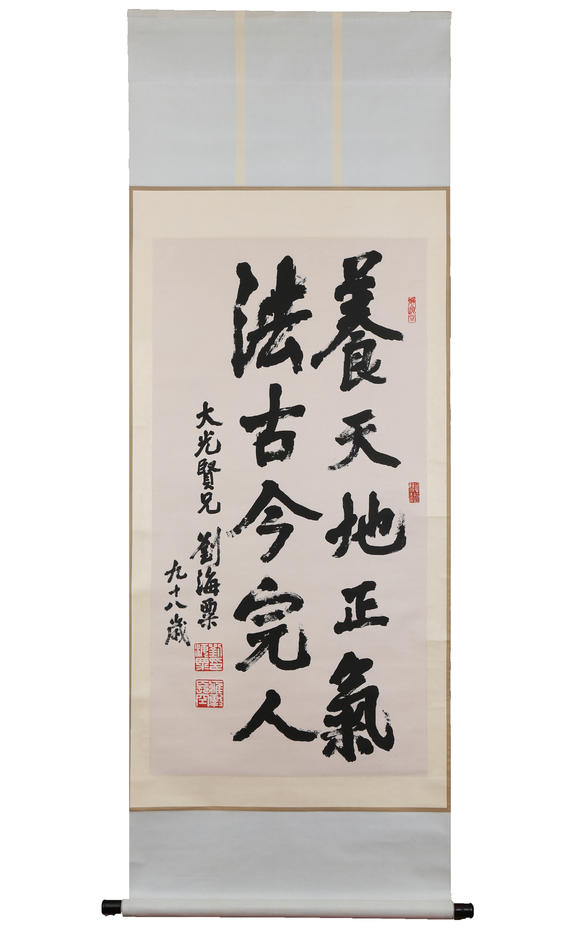 養天地正氣
法古今完人
大光賢兄 劉海粟
九十八歲